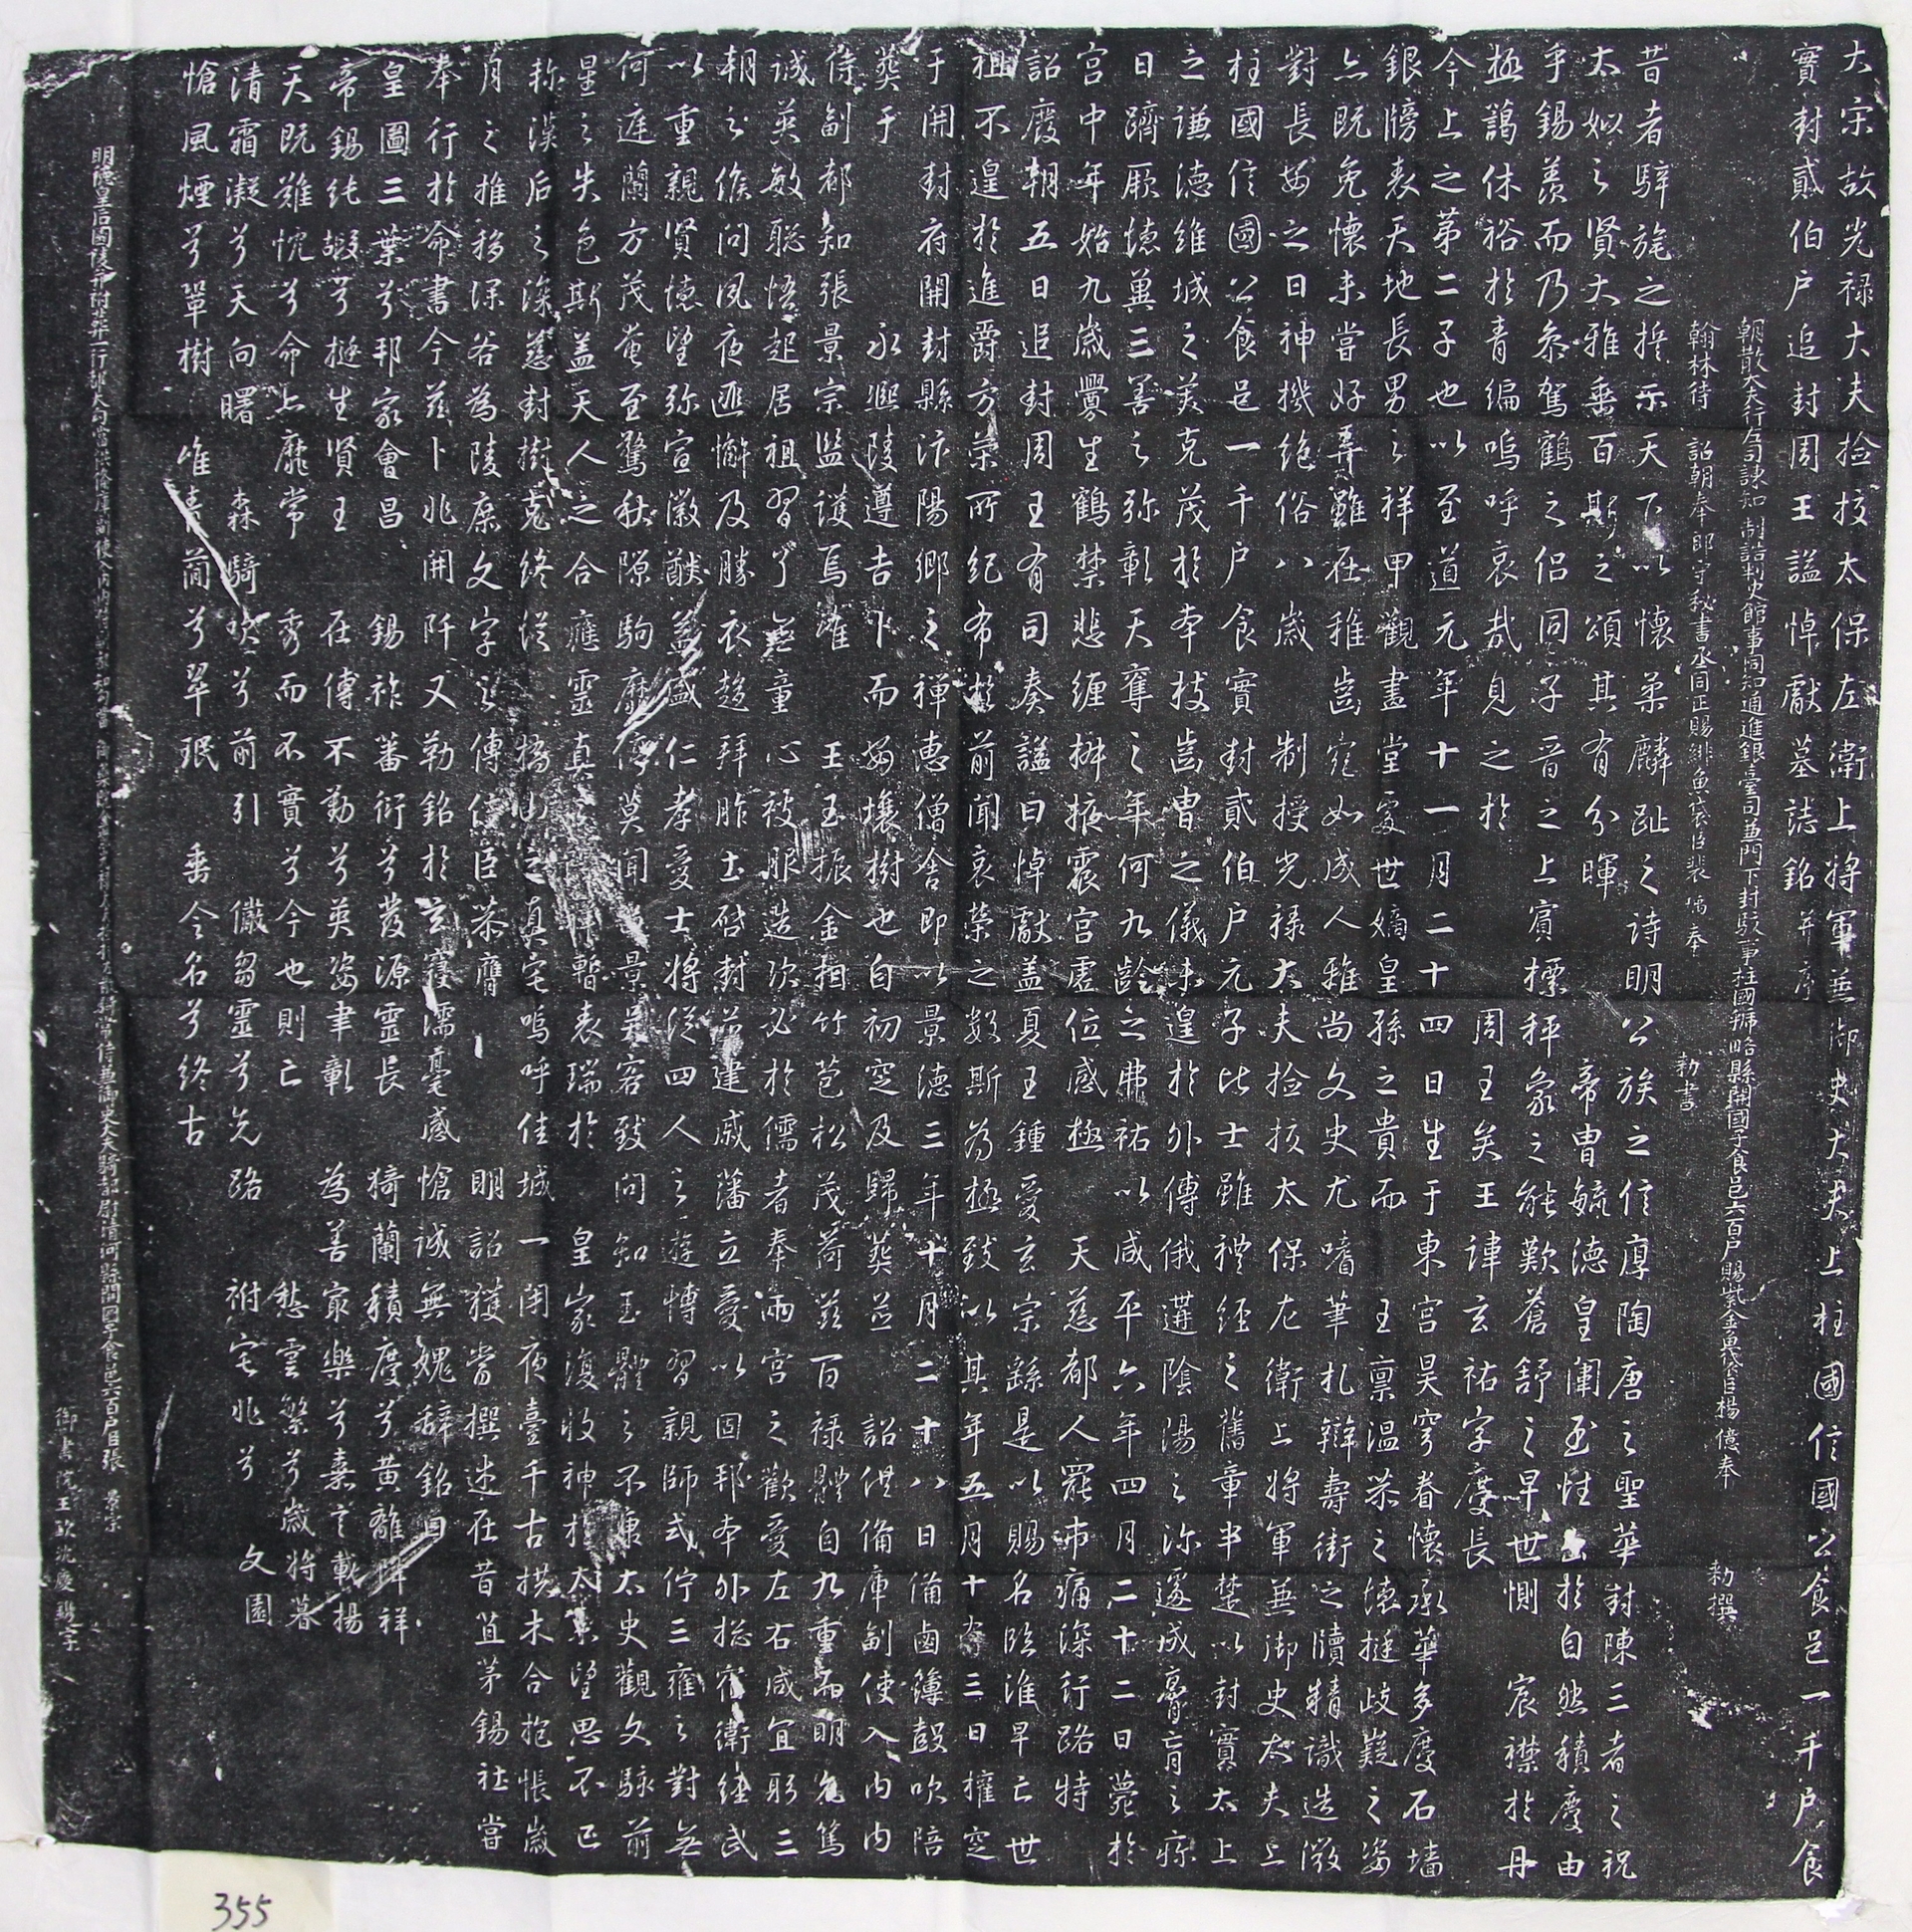 大宋故光祿大夫撿挍太保左衛上將軍兼御史大夫上柱國信國公食邑一千戶食
實封貳伯戶追封周王謚悼獻墓誌銘并序
朝散大夫行左司諫知制誥判史館事同知通進銀臺司兼門下封駁事柱國虢略縣開國子食邑六百戶賜紫金魚袋臣楊億奉 勑撰
翰林待詔朝奉郎守秘書丞同正賜緋魚袋臣裴瑀奉 勑書
昔者騂旄之誓示天下以懷柔麟趾之詩明公族之信厚陶唐之聖華封陳三者之祝
太姒之賢大雅垂百斯之頌其有分暉帝胄毓德皇闈至性出於自然積慶由
乎錫羨而乃叅駕鶴之侶同子晉之上賓摽秤象之能歎蒼舒之早世惻 宸襟於丹
極謁休裕於青編嗚呼哀哉見之於 周王矣王諱玄祐字慶長
今上之苐二子也以至道元年十一月二十四日生于東宮昊穹眷懷承華多慶石墻
銀牓表天地長男之祥甲觀畫堂處世嫡皇孫之貴而 王禀溫恭之德挺岐嶷之姿
亦既免懷未當好弄雖在稚齒宛如成人雅尚文史尤嗜筆札辯壽街之牘精識造微
對長安之日神機絕俗八歲 制授光祿大夫撿挍太保左衛上將軍兼御史大夫上
柱國信國公食邑一千戶食實封貳伯戶元子比士雖禮經之舊章半楚以封實太上
之謙德維城之美克茂於夲枝齒胄之儀未遑於外傅俄遘陰陽之沴遽成膏肓之瘵
日躋厥德冀三善之弥彰天奪之年何九齡之弗祐以咸平六年四月二十二日薨於
宮中年始九歲釁生鶴禁悲纏掖震宮虛位感極 天慈都人罷市痛深行路特
詔廢朝五日追封周王有司奏謚曰悼獻盖夏王鍾愛玄宗繇是以賜名臨淮早亡世
祖不遑於進爵方榮所紀布於前聞哀榮之數斯為極致以其年五月十有三日權窆
于開封府開封縣汴陽鄉之禪惠僧舍即以景德三年十月二十八日備鹵簿鼓吹陪
葬于 永熙陵遵吉卜而安壤樹也自初窆及歸葬並 詔供備庫副使入內內
侍副都知張景宗監護焉惟 王玉振金相竹苞松茂荷茲百祿體自九重而明允篤
誠英敏聡悟起居祖習了無童心被服造次必於儒者奉兩宮之歡愛左右咸宜躬三
朝之候問夙夜匪懈及勝衣趍拜胙土啓封茲建戚藩立愛以固邦夲外捴宿衛經武
以重親賢德望弥宣徽猷益盛仁孝愛士將從四人之遊博習親師式佇三雍之對無
何遅蘭方茂萱至驚秋隙駒靡停莫聞景晏容致問知玉體之不康太史觀文駭前
星之失色斯盖天人之合應靈真降暫表瑞於 皇家復收神於太素望思不已
称漢后之深慈封樹克終從橋山之真宅嗚呼佳城一閉夜臺千古拱木合抱悵歲
月之推移深谷為陵庶文字之傳信臣恭膺 明詔獲當撰述在昔苴茅錫社當
奉行於命書今茲卜兆開阡又勒銘於玄寢濡毫感愴誠無媿辭銘曰
皇圖三葉兮邦家會昌 錫祚蕃衍兮發源靈長 猗蘭積慶兮黃離降祥
帝錫純嘏兮挻生賢王 在傅不勤兮英姿聿彰 為善宲樂兮彜言載揚
天既難忱兮命亦靡常 秀而不實兮今也則亡 愁雲繁兮歲將暮
清霜凝兮天向曙 森騎吹兮前引 儼芻靈兮先路 祔宅兆兮文園
愴風煙兮翠樹 唯青簡兮翠珉 垂令名兮終古
明德皇后園陵 開國子食邑六百戶臣張景宗
御書院王欽沈慶 鐫字